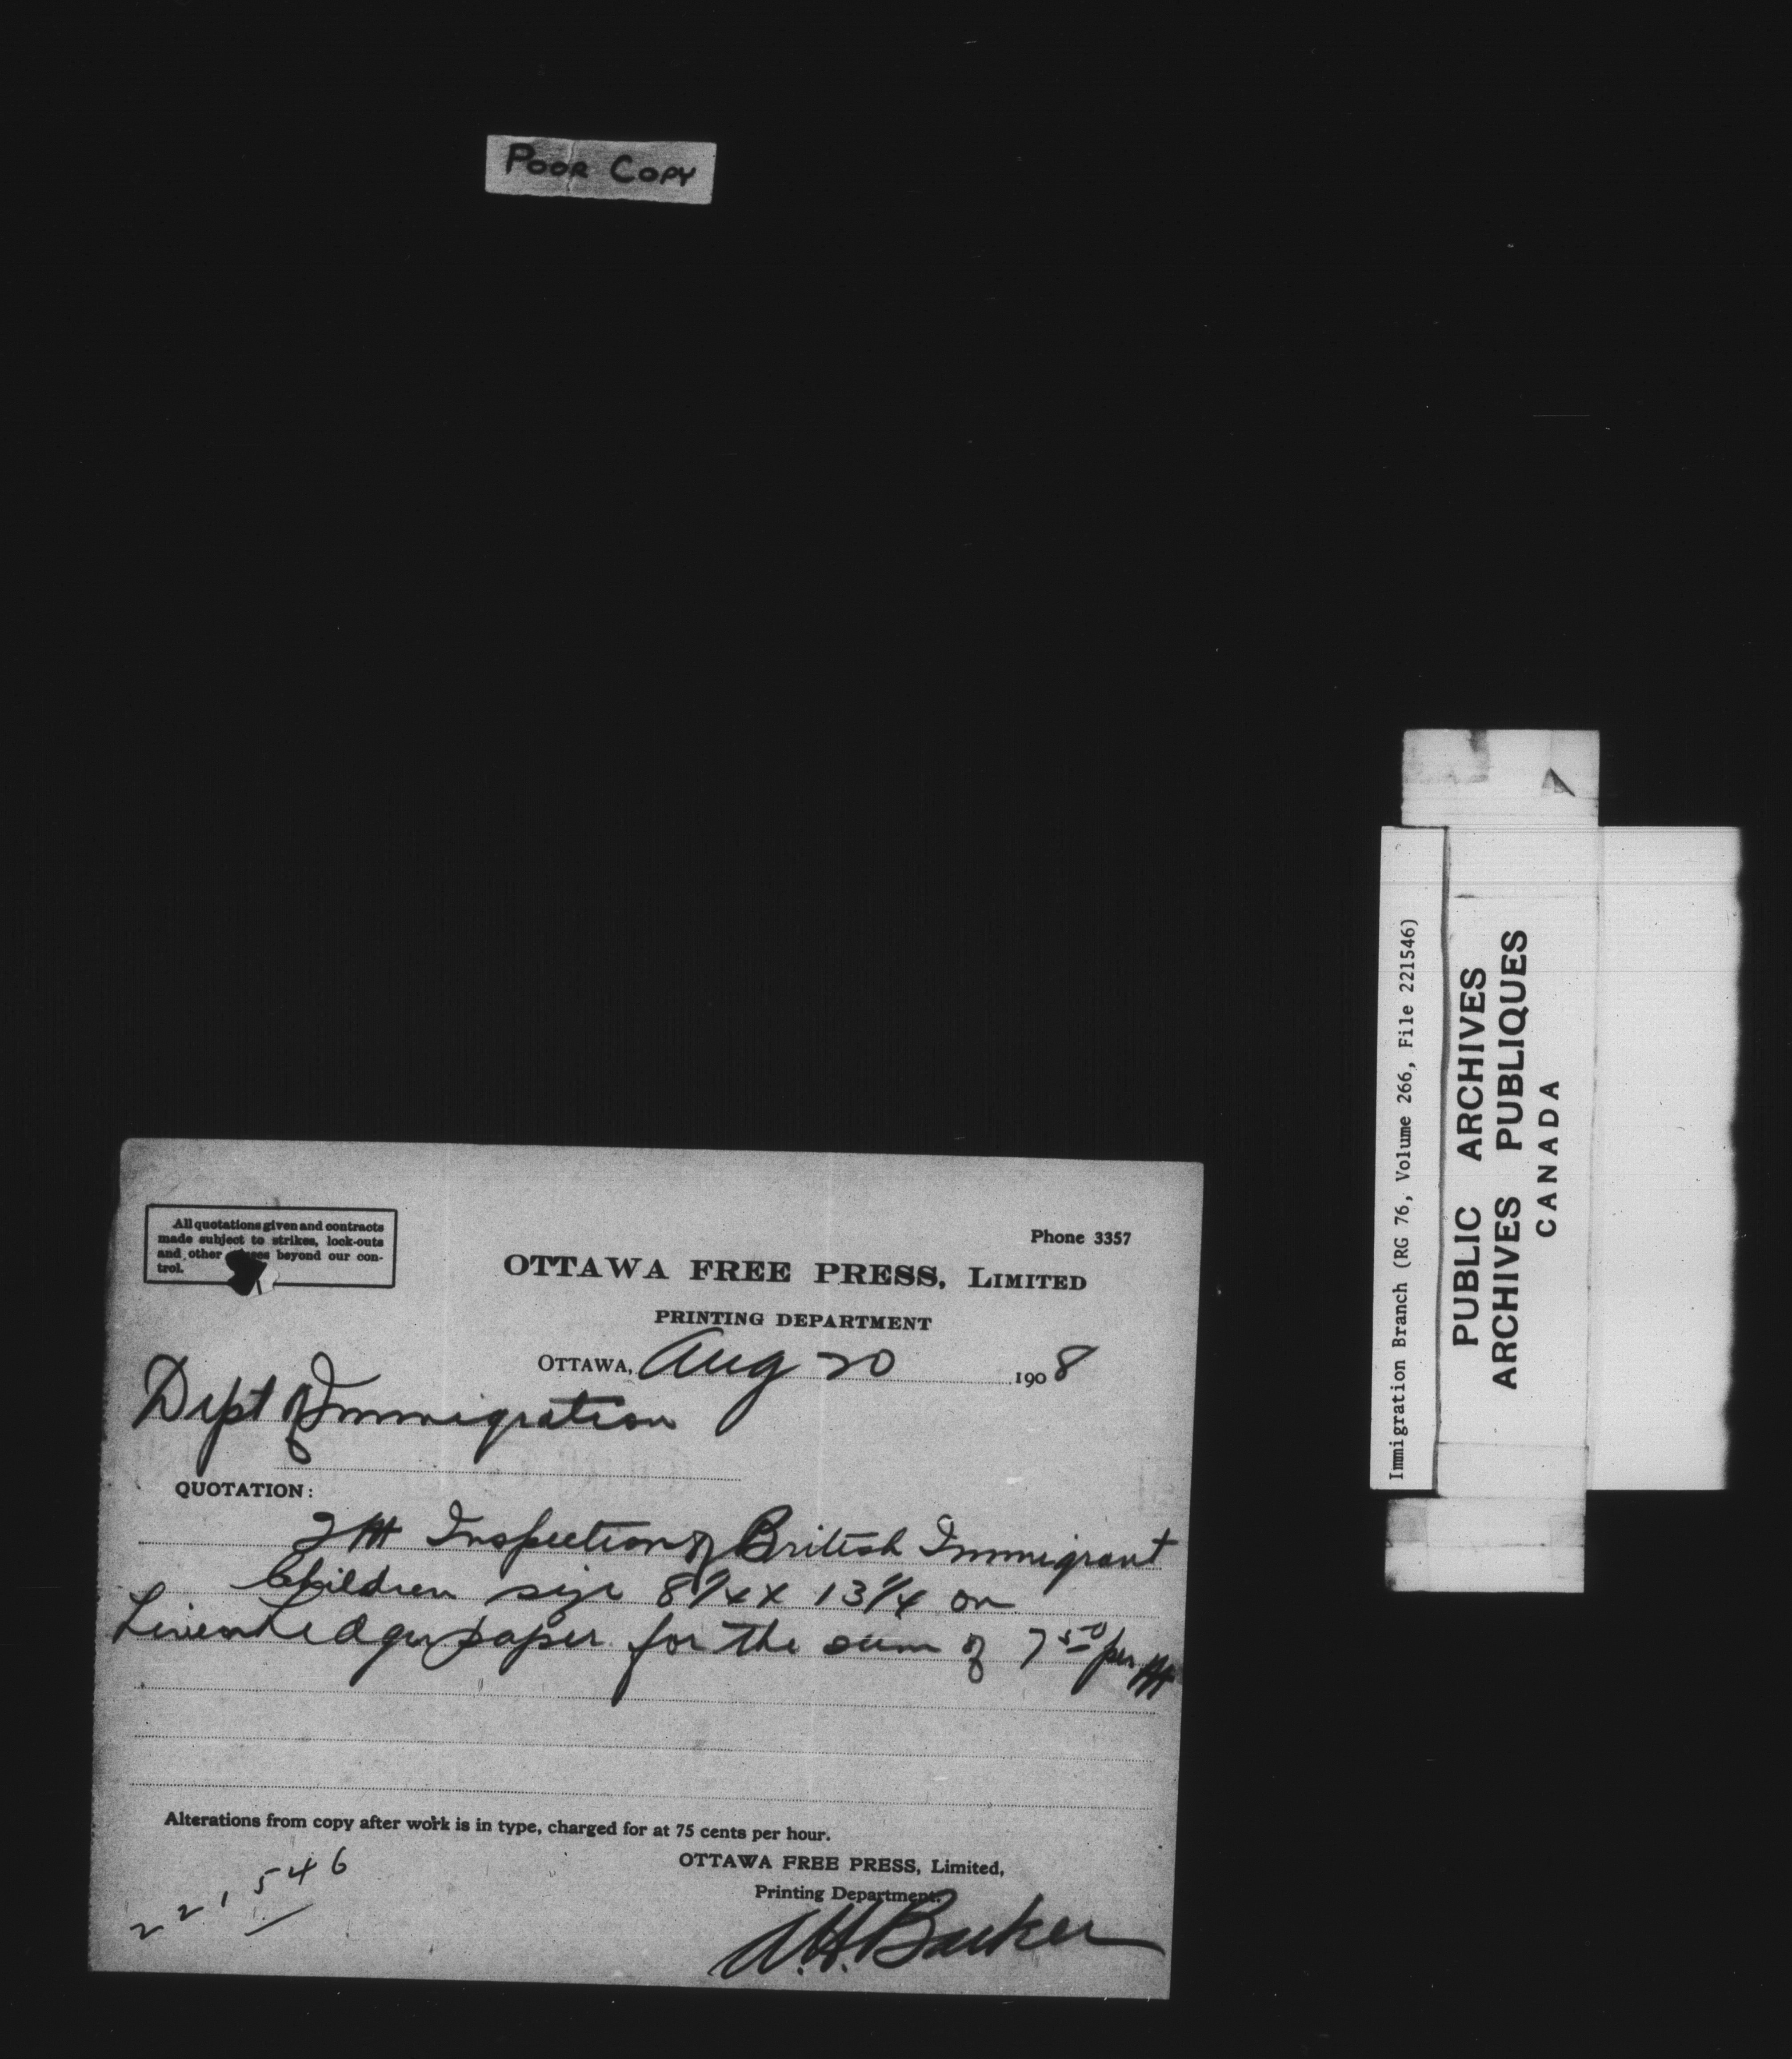 POOR COPY
All quotations given and contracts
made subject to strikes, lock-outs
and other beyond our con-
trol.
Phone 3357
OTTAWA FREE PRESS, LIMITED
PRINTING DEPARTMENT
OTTAWA, Aug 20 1908
Dept of Immigration
QUOTATION:
2 M Inspection of British Immigrant
Children size 8 1/4 x 13 1/4 on
Linen Ledger paper for the sum of 7 50 per M
Alterations from copy after work is in type, charged for at 75 cents per hour.
OTTAWA FREE PRESS, Limited,
Printing Department.
221546
Immigration Branch (RG 76, Volume 266, File 221546)
PUBLIC ARCHIVES
ARCHIVES PUBLIQUES
CANADA